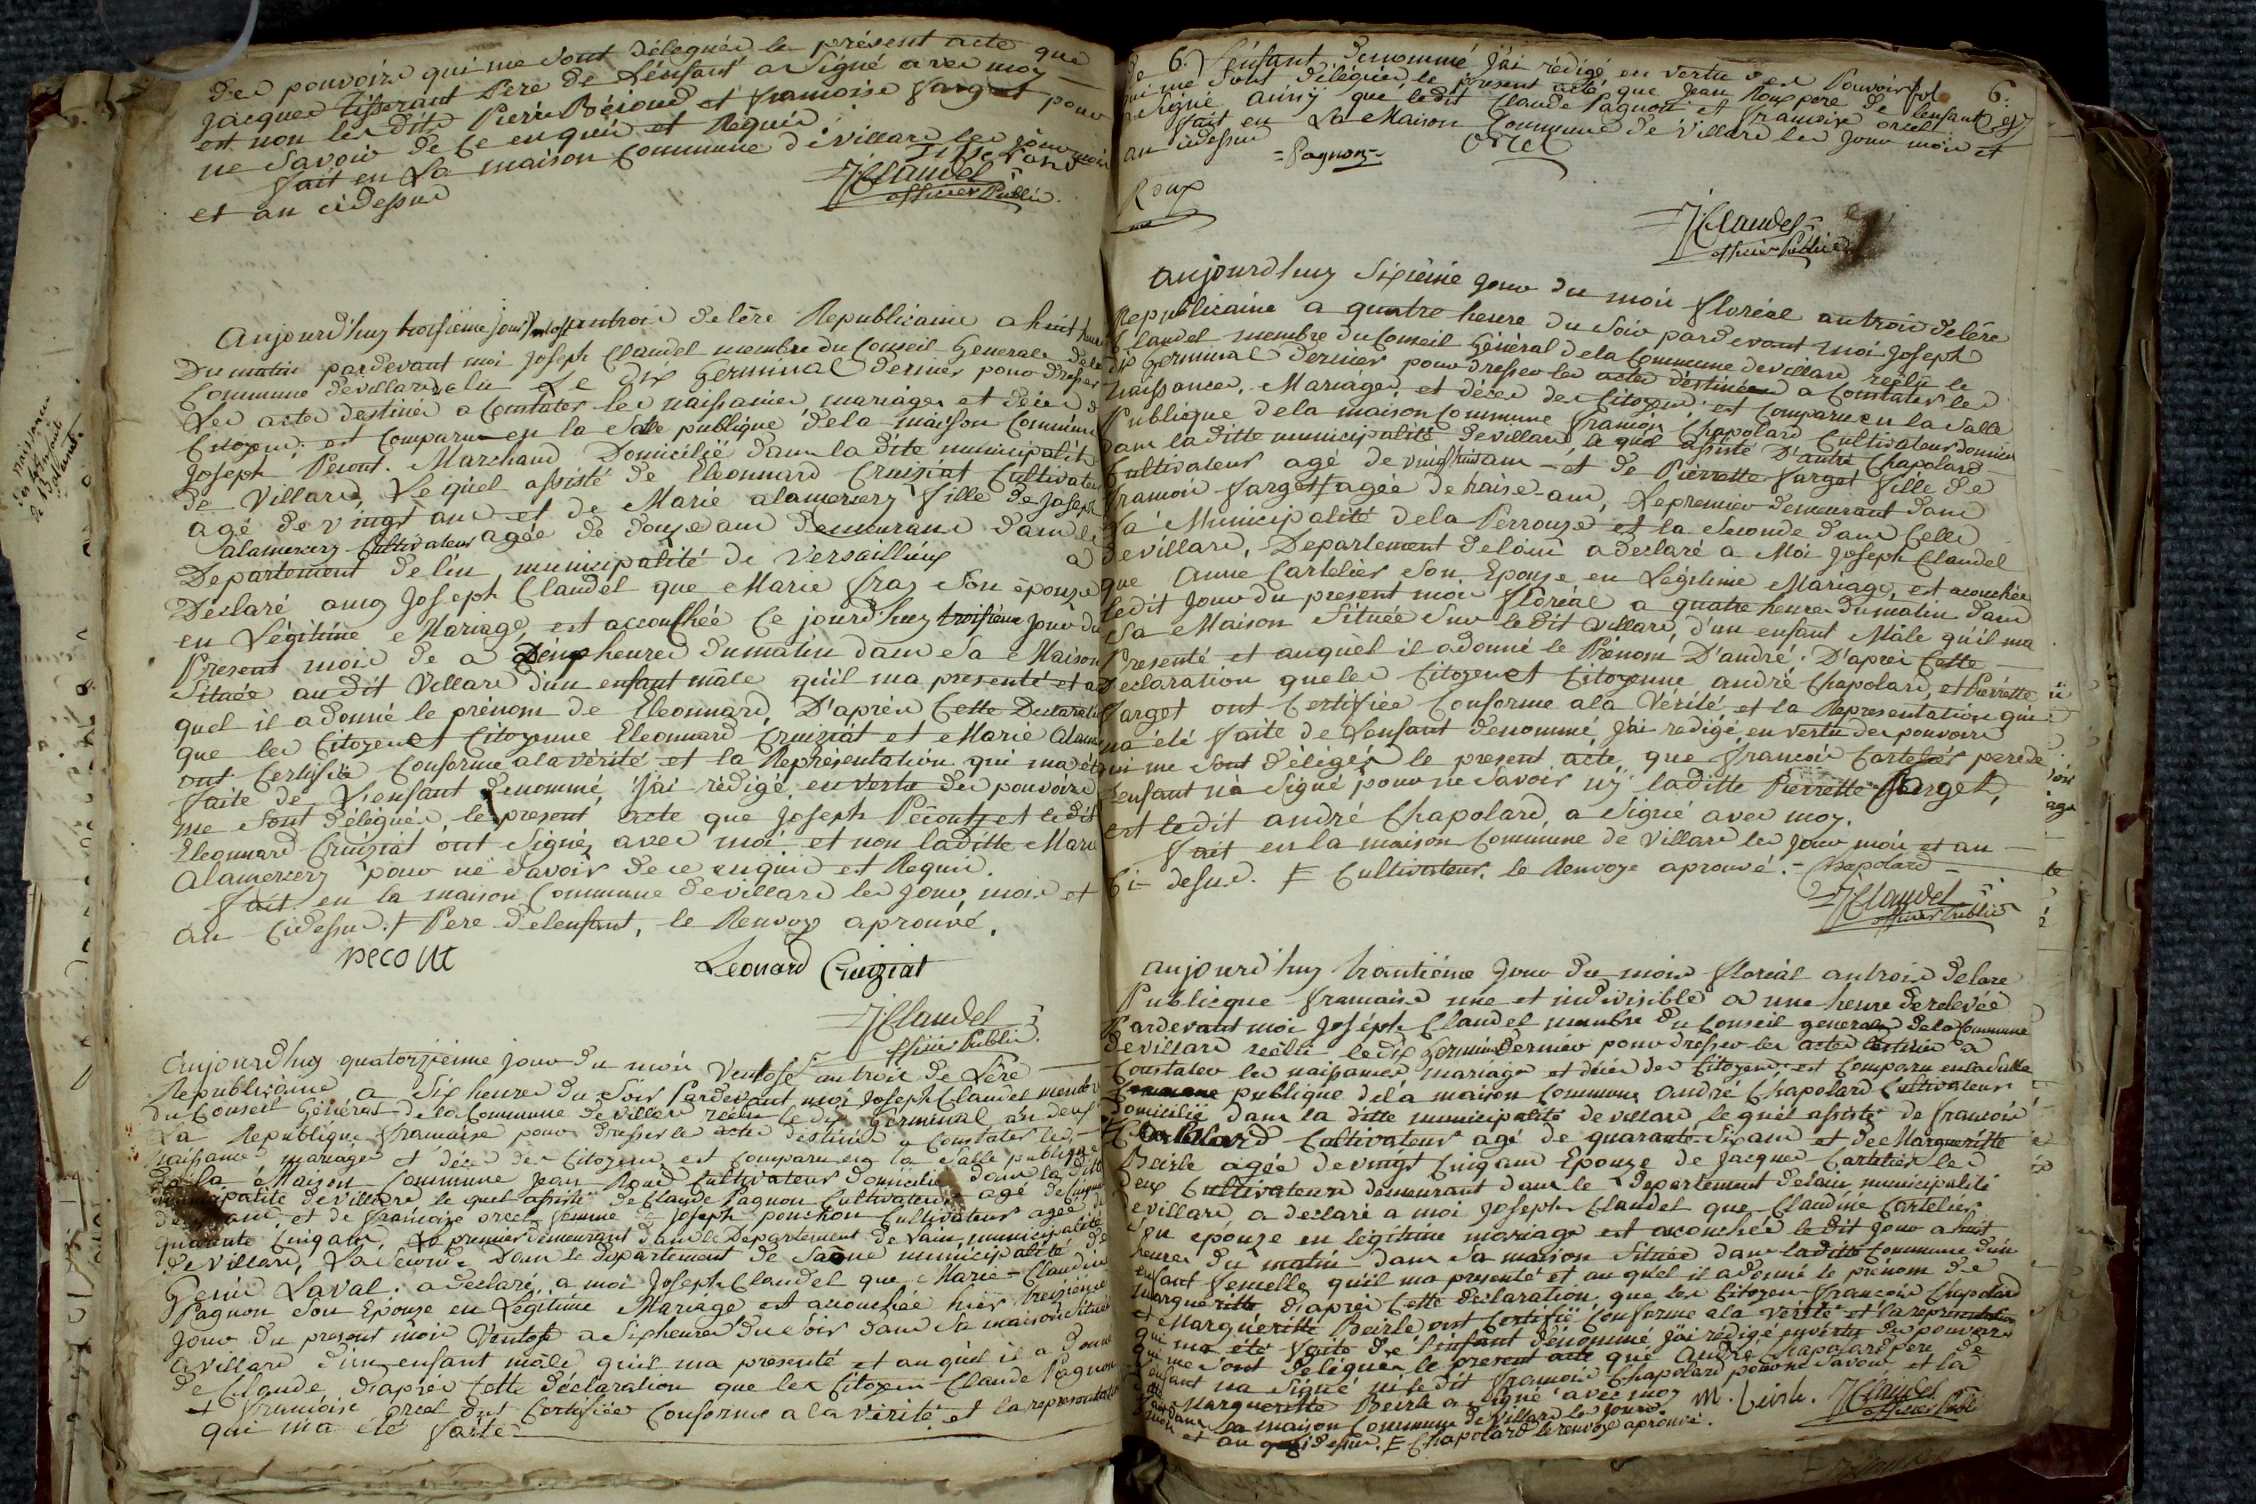 des pouvoirs qui me sont délégués le présent acte que
Jacques tisserant Pere de L'enfant a signé avec moy
et non les dits Pierre et francoise Varget pour
ne Savoir de Ce enquis et Requis
fait en La maison Commune de villard les jour mois
et an cidessus
JClaudel
officier Public
Aujourd'huy troisieme jour antrois de lère Republicaine a huit heure
Du matin pardevant moi Joseph Claudel membre du Conseil General de la
Commune devillard elu Le dix Germinal dernier pour dresser
Les actes destinés a Constater les naissances, mariages et décès de
Citoyens; est Comparu en la Salle publique dela maison Commune
Joseph Pecout Marchand Domicilié dans la dite municipalité
de Villard, Lequel assisté de Eleonnard Cruiziat Cultivateur
agé de vingt ans et de Marie alamercery fille de Joseph
alamercery Cultivateur agée de douze ans demeurans dans le
Departement de lin municipalité de Versaillieux a
Déclaré amoy Joseph Claudel que Marie fras Son épouse
en Légitime Mariage, est accouchée Ce jourd'huy troisième jour du
Present mois de a heures dumatin dans Sa Maison
Située audit Villard d'un enfant mâle qu'il ma presenté et au
quel il adonné le prénom de Eleonnard, D'après Cette Declaration
que les Citoyen et Citoyenne Eleonnard Cruiziat et Marie Alam
ont Certifiée Conforme alavérité et la Représentation qui ma été
faite de L'enfant denommé j'ai rédigé envertu des pouvoirs
me Sont délégués, le present acte que Joseph Pécout et ledit
Eleonnard Cruiziat ont Signés avec moi et non laditte Marie
Alamercery pour ne Savoir dece enquis et Requis.
fait en la maison Commune devillard les Jour, mois et
an Cidessus. + Pere delenfant, le Renvoy aprouvé.
pecout Leonard Cruiziat
JClaudel
officier Public
Aujourd'huy quatorzieme jour du mois Ventose antrois de Lère
Republicaine a Six heures du Soir Pardevant moi Joseph Claudel membre
du Conseil Général de la Commune de villard reélu le dix Germinal an deux
La Republique francaise pour dresser les actes destinés a Constater les
naissances mariages et décès des Citoyens est Comparu en la Salle publique
de la Maison Commune Jean Roux Cultivateur domicilié dans la ditte
municipalité devillard le quel assisté de Claude Pagnon Cultivateur agé de Cinquante
ans et de françoise orcel femme de Joseph ponchon Cultivateur agée de
quarante Cinq ans, Le premier demeurant dans le Departement de Lain municipalité
de villard, La Seconde Dans le departement de Saône municipalité de
Genis Laval; a déclaré a moi Joseph Claudel que Marie-Claudine
Pagnon Son Epouze en Légitime Mariage est acouchée hier treizième
jour du present mois Ventose a Six heures du Soir dans Sa maison Située
avillard d'un enfant mâle qu'il ma presenté et auquel il a donné
de Claude, d'aprés Cette déclaration que les Citoyens Claude Pagnon
et francoise orcel ont Certifiée Conforme a la vérité et la representation
qui m'a été faite
de 6. L'enfant denommé j'ai rédigé en vertu des Pouvoirs fol. 6.
qui me Sont délégués, le present acte que Jean Roux pere de lenfant
Signé ainsy que ledit Claude Pagnon et francoise orcel
fait en La Maison Commune de Villard les jour mois et
an cidessus
=Pagnon= orcel
Roux
JClaudel
officier Public
aujourd'huy Sixième jour du mois floréal antrois delère
Republicaine a quatre heure du Soir pardevant moi Joseph
Claudel membre du Conseil Général dela Commune devillard reélu le
dix Germinal dernier pour dresser les actes destinées a Constater les
naissances, Mariages, et décès des Citoyens; est Comparu en la Salle
Publique dela maison Commune francois Chapolard Cultivateur domicilié
dans laditte municipalité devillard, lequel assisté D'antre Chapolard
Cultivateur agé de vingthuit ans et de Pierrette Varget fille de
francois Varget agée de ans, Le premier demeurant dans
La Municipalité dela Perrouze et la Seconde dans Celle
devillard, Departement delain a déclaré a Moi Joseph Claudel
que Anne Cartelier Son Epouze en Légitime Mariage, est acouchée
ledit Jour du present mois floréal a quatre heures dumatin dans
Sa Maison Située Sur ledit Villard, d'un enfant Mâle qu'il ma
Presenté et auquel il adonné le Prénom D'andré. D'après Cette
Declaration que les Citoyen et Citoyenne andré Chapolard, et Pierrette
Varget ont Certifiée Conforme ala Vérité et la Representation qui
ma été faite de Lenfant denommé, j'ai redigé en vertu des pouvoirs
qui me Sont délégés le present acte que francois Cartelier pere de
lenfant n'a Signé pour ne Savoir ny laditte Pierrette Varget,
est ledit andré Chapolard, a Signé avec moy.
fait en la maison Commune de Villard les Jour mois et an
Ci-dessus. Cultivateur, le Renvoye aprouvé. Chapolard
JClaudel
officier Public
aujourd'huy trantième Jour du mois floréal antrois delare
Publicque francaise une et indivisible a une heure de relevée
Pardevant moi Joséph Claudel membre du Conseil general dela Commune
devillard reélu ledix Germin dernier pour dresser les actes destinés a
Constater les naissances mariages et décès des Citoyens; est Comparu en la Salle
publique déla maison Commune André Chapolard Cultivateur
domicilié dans la ditte municipalité devillard, le quel assisté de francois
Cultivateur agé de quarante Six ans et de Margueritte
Beirle agée devingt Cinqans Epouze de Jacques Cartelier les
deux Cultivateurs demeurant dans le departement delain municipalité
devillard a declaré a moi Joseph Claudel que Claudine Cartelier
Son épouze en legitime mariage est acouchée ledit jour a huit
heures du matin dans Sa maison Située dans laditte Commune d'un
enfant femelle qu'il ma presenté et au quel il adonné le prénom de
Margueritte d'après Cette declaration que les Citoyen francois Chapolard
et Margueritte Beirle ont Certifié Conforme ala vérité et la representation
qui ma été faite de L'enfant dénommé j'ai rédigé en vertu des pouvoirs
qui me Sont delégués le present acte que André Chapolard pere de
L'enfant na Signé ni ledit francois Chapolard pour ne Savoir et la
Margueritte Beirle a Signé avec moy M. beirle. JClaudel
fait dans La maison Commune de Villard les Jour officier Public
mois et an que dessus. Chapolard le renvoye aprouvé.